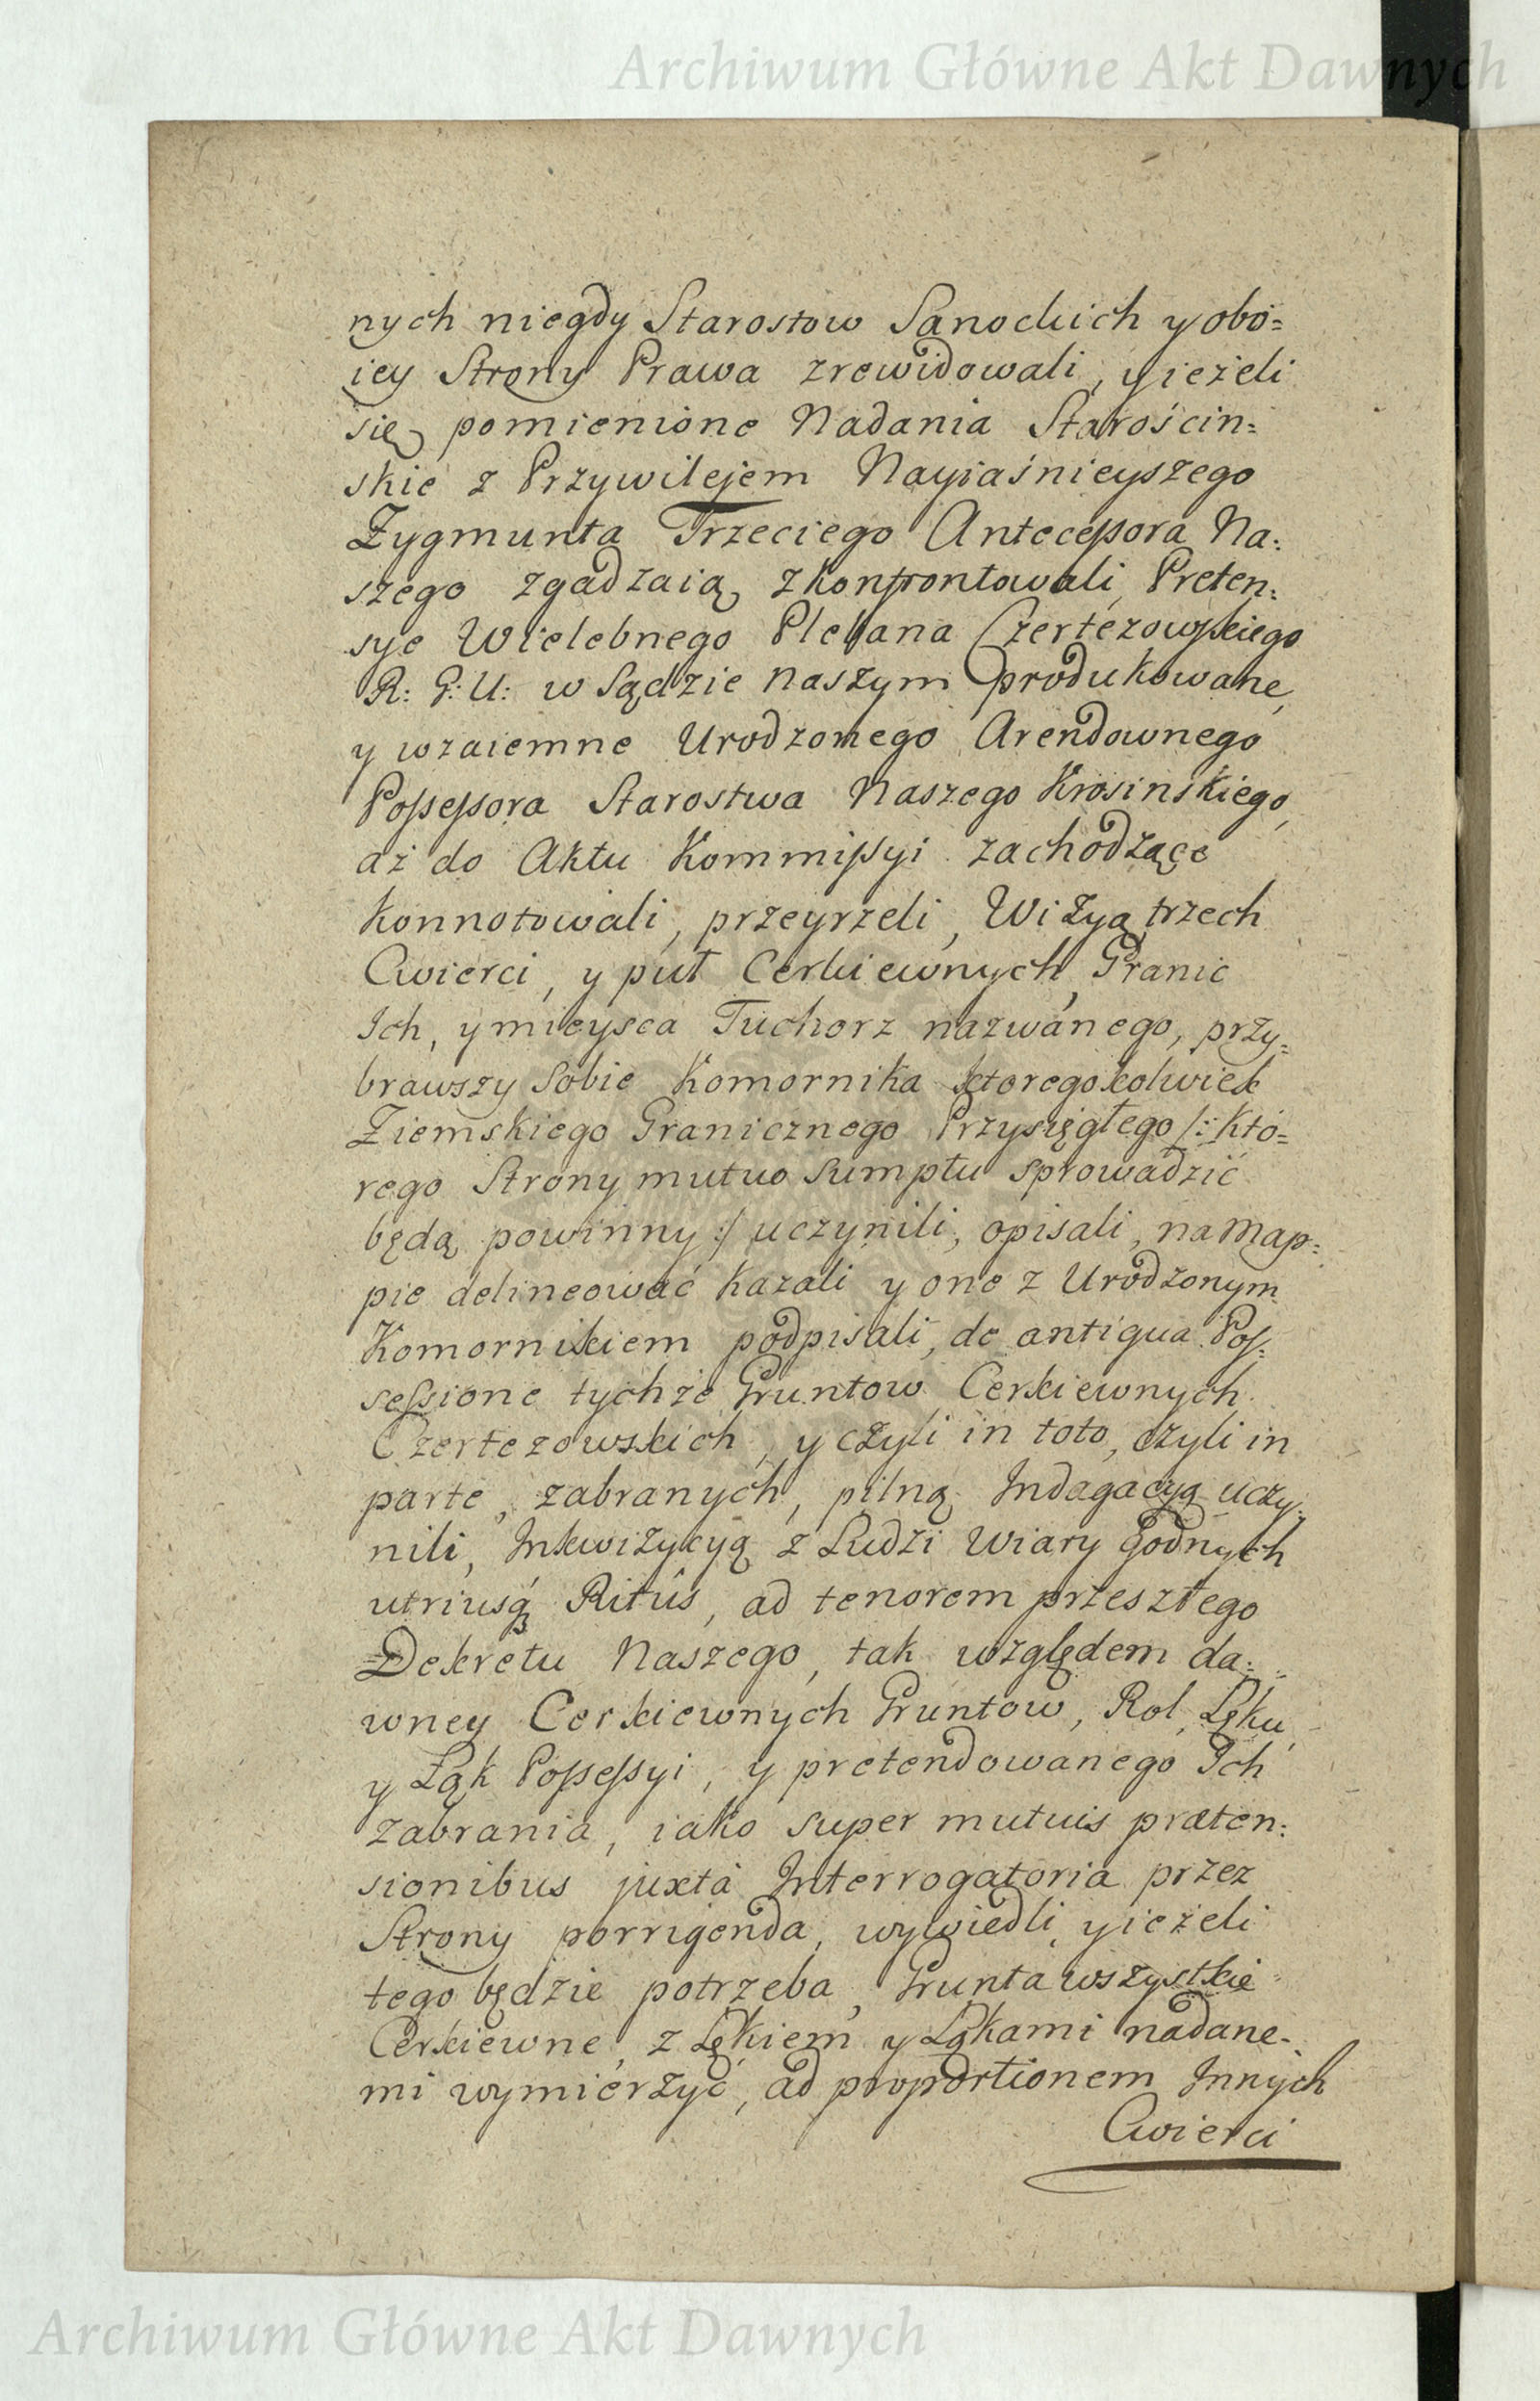 Archiwum Główne Akt Dawnych
nych niegdy Starostow Sanockich y obo=
iey Strony Prawa zrewidowali, y ieżeli
się pomienione Nadania Starościn=
skie z Przywilejem Nayiaśnieyszego
Zygmunta Trzeciego Antecessora Na=
szego zgadzaią zkonfrontowali, Preten=
sye Wielebnego Plebana Czertezowskiego
R: G: U: w Sądzie naszym produkowane,
y wzaiemne Urodzonego Arendownego
Possessora Starostwa Naszego Krosinskiego,
aż do Aktu Kommissyi zachodzące
konnotowali, przeyrzeli, Wizyą trzech
Cwierci, y puł Cerkiewnych, Granic
Ich, y mieysca Tuchorz nazwanego, przy=
brawszy Sobie Komornika ktoregokolwiek
Ziemskiego Granicznego Przysięgłego /: Któ=
rego Strony mutuo Sumptu sprowadzić
będą powinny :/ uczynili, opisali, na Map=
pie delineować kazali y one z Urodzonym
Komornikiem podpisali, de antiqua Pos=
sessione tychże Gruntow Cerkiewnych
Czertezowskich, y czyli in toto, czyli in
parte, zabranych, pilną Indagacyą uczy=
nili, Inkwizycyą z Ludzi Wiary godnych
utriusq Ritûs, ad tenorem przeszłego
Dekretu Naszego, tak względem da=
wney Cerkiewnych Gruntow, Rol, Łęku
y Łąk Possessyi, y pretendowanego Ich
zabrania, iako super mutuis præten=
sionibus juxta Interrogatoria przez
Strony porrigenda, wywiedli, y ieżeli
tego będzie potrzeba, Grunta wszystkie
Cerkiewne, z Łękiem y Łąkami nadane=
mi wymierzyć, ad proportionem Innych
Cwierci
Archiwum Główne Akt Dawnych